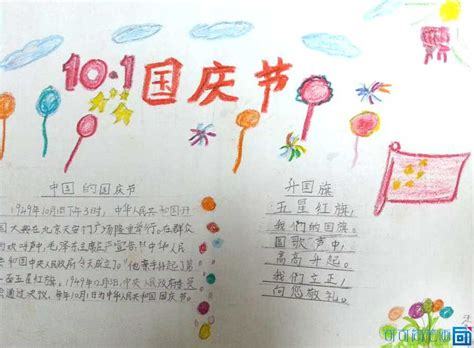 10.1 国庆节
中国的国庆节
1949年10月1日下午3时,中华人民共和国开
国大典在北京天安门广场隆重举行。在群众
的欢呼声中,毛泽东主席庄严宣告"中华人民
共和国中央人民政府今天成立了。"他亲手升起第
一面五星红旗。1949年12月3日,中央人民政府
会通过决议,每年10月1日为中华人民共和国国庆节。
升国旗
五星红旗,
我们的国旗。
国歌声中,
高高升起。
我们立正,
向您敬礼。